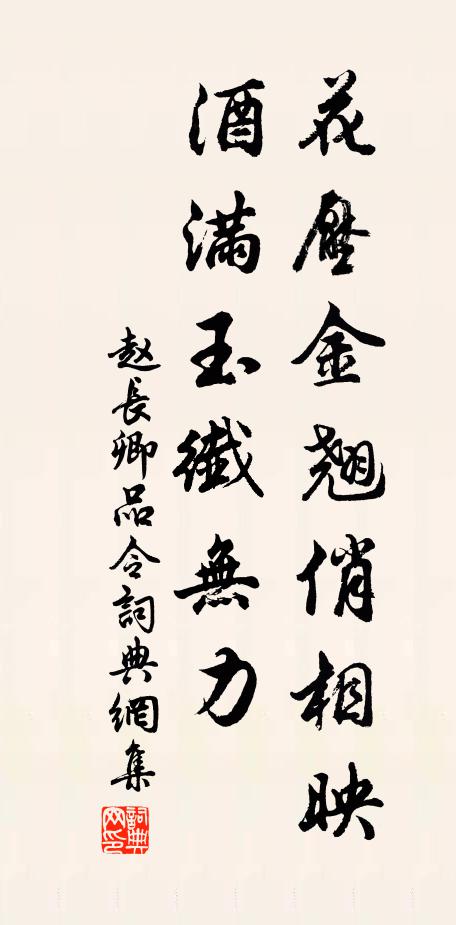 花壓金翹俏相映
酒滿玉纖無力
赵長卿品令詞典網集
詞典網印